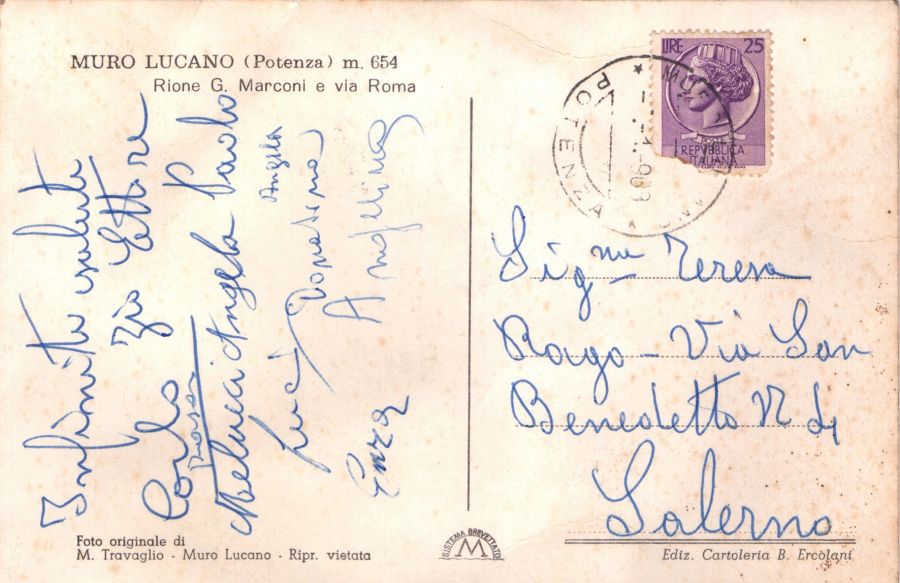 MURO LUCANO (Potenza) m. 654
Rione G. Marconi e via Roma
Infiniti saluti
Zio Ettore
Carlo Paolo
Melucci Angela
Angela
Luci Donatina
Angelina
Enza
Foto originale di
M. Travaglio - Muro Lucano - Ripr. vietata
SISTEMA BREVETTATO
M
LIRE 25
POSTE
REPVBBLICA
ITALIANA
MURO LUCANO
POTENZA
Sig.na Teresa
Rago - Via San
Benedetto N di
Salerno
Ediz. Cartoleria B. Ercolani